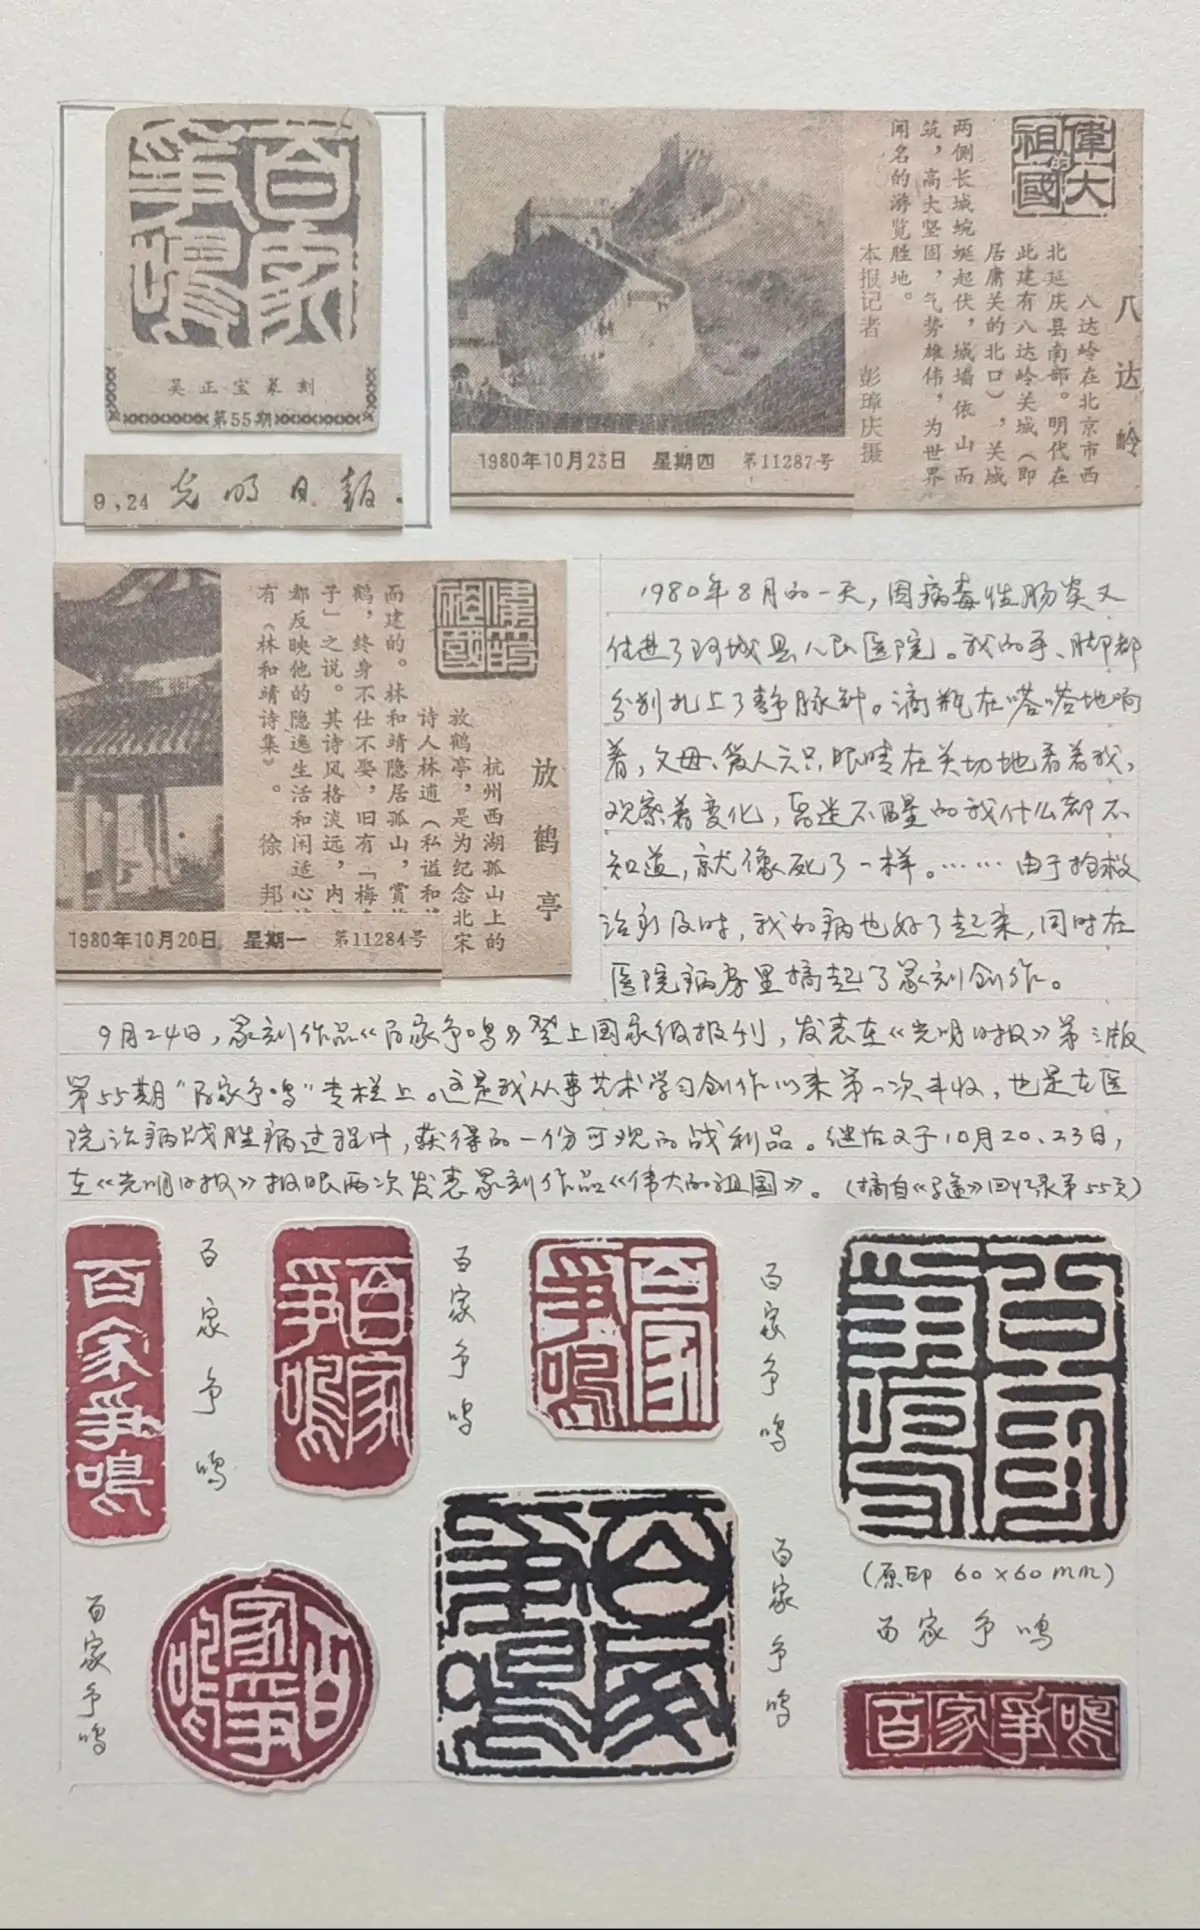 百家
爭鳴
吴正宝篆刻
第55期
9,24 光明日報
偉大
的
祖國
八达岭
八达岭在北京市西
北延庆县南部。明代在
此建有八达岭关城（即
居庸关的北口），关城
两侧长城蜿蜒起伏，城墙依山而
筑，高大坚固，气势雄伟，为世界
闻名的游览胜地。
本报记者 彭璋庆摄
1980年10月23日 星期四 第11287号
偉大的
祖國
放鹤亭
杭州西湖孤山上的
放鹤亭，是为纪念北宋
诗人林逋（私谥和
而建的。林和靖隐居孤山，赏
鹤，终身不仕不娶，旧有「梅
子」之说。其诗风格淡远，内
都反映他的隐逸生活和闲适心
有《林和靖诗集》。 徐邦
1980年10月20日 星期一 第11284号
1980年8月的一天，因病毒性肠炎又
住进了阿城县人民医院。我的手、脚都
分别扎上了静脉针。滴瓶在嗒嗒地响
着，父母、爱人六只眼睛在关切地看着我，
观察着变化，昏迷不醒的我什么都不
知道，就像死了一样。……由于抢救
治疗及时，我的病也好了起来，同时在
医院病房里搞起了篆刻创作。
9月24日，篆刻作品《百家争鸣》登上国家级报刊，发表在《光明日报》第三版
第55期"百家争鸣"专栏上。这是我从事艺术学习创作以来第一次丰收，也是在医
院治病战胜病过程中，获得的一份可观的战利品。继后又于10月20、23日，
在《光明日报》报眼两次发表篆刻作品《伟大的祖国》。（摘自《 》回忆录第55页）
百家爭鳴
百家争鸣
百家爭鳴
百家争鸣
百家爭鳴
百家争鸣
百家爭鳴
（原印 60×60mm）
百家争鸣
百家争鸣
百家爭鳴
百家爭鳴
百家争鸣
百家爭鳴